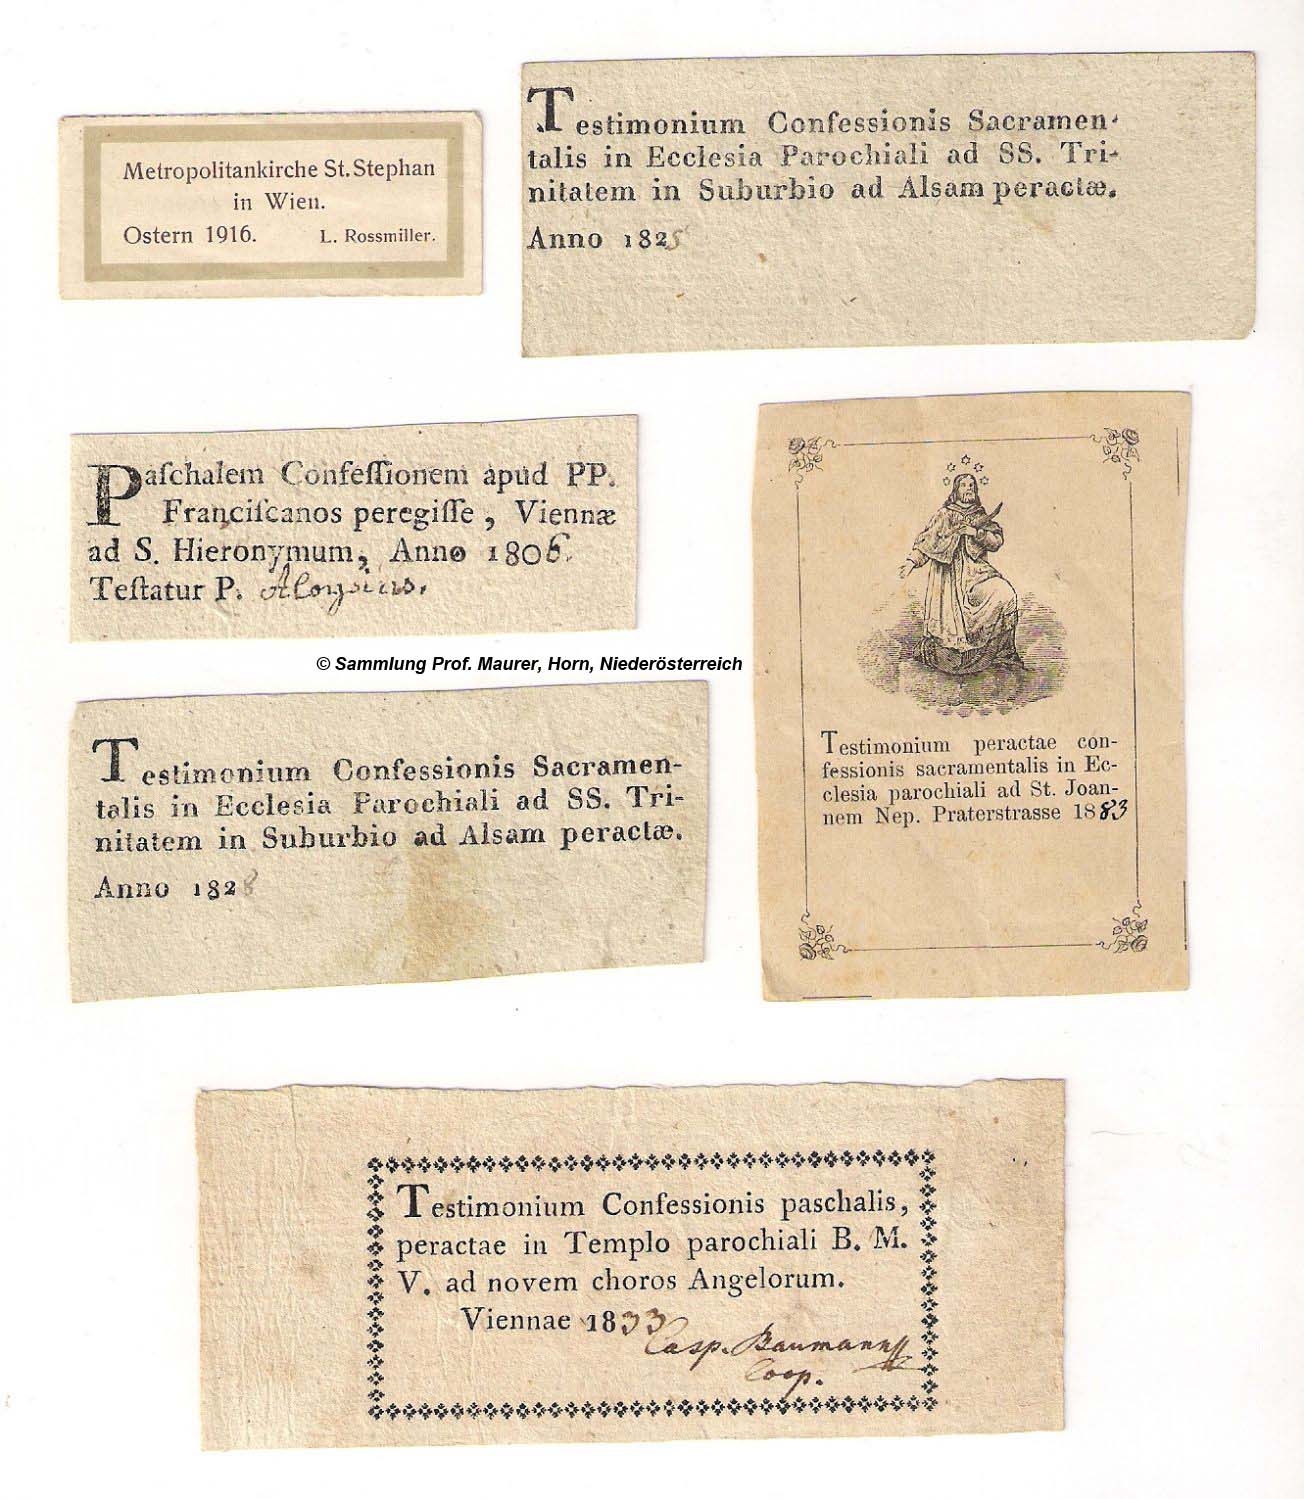 Metropolitankirche St. Stephan
in Wien.
Ostern 1916. L. Rossmiller.
Testimonium Confessionis Sacramen-
talis in Ecclesia Parochiali ad SS. Tri-
nitatem in Suburbio ad Alsam peractæ.
Anno 1825
Paſchalem Confeſſionem apud PP.
Franciſcanos peregiſſe, Viennæ
ad S. Hieronymum, Anno 1806.
Teſtatur P. Aloysius.
© Sammlung Prof. Maurer, Horn, Niederösterreich
Testimonium Confessionis Sacramen-
talis in Ecclesia Parochiali ad SS. Tri-
nitatem in Suburbio ad Alsam peractæ.
Anno 1828
Testimonium peractae con-
fessionis sacramentalis in Ec-
clesia parochiali ad St. Joan-
nem Nep. Praterstrasse 1883
Testimonium Confessionis paschalis,
peractae in Templo parochiali B. M.
V. ad novem choros Angelorum.
Viennae 1833
Casp. Baumann
Coop.